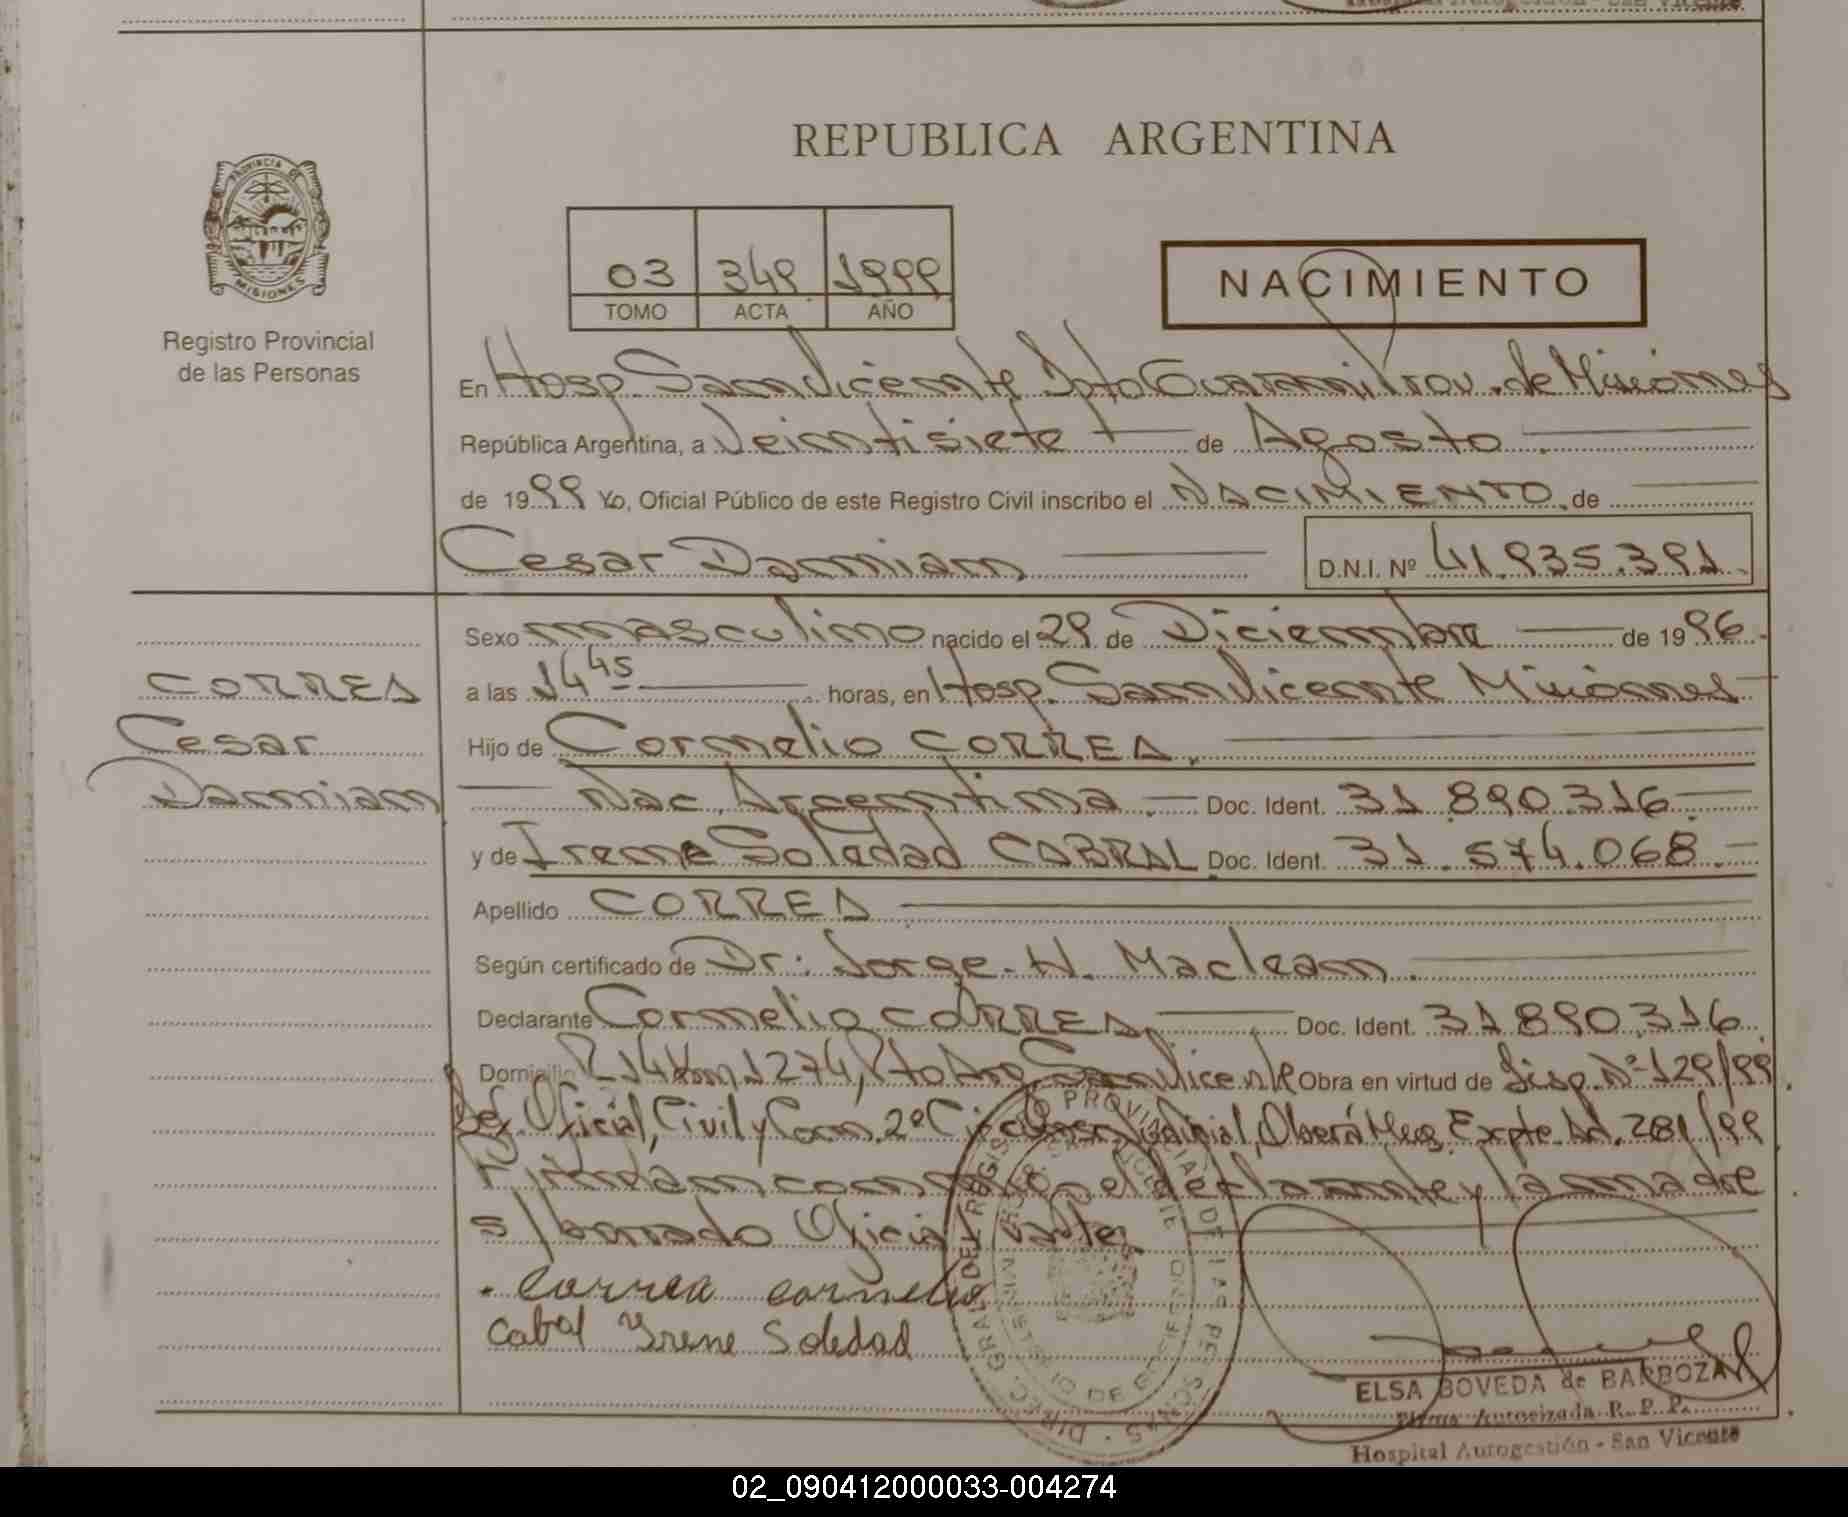 REPUBLICA ARGENTINA
PROVINCIA DE
MISIONES
Registro Provincial
de las Personas
03 349 1999
TOMO ACTA AÑO
NACIMIENTO
En Hosp. San Vicente Dpto Guarani Prov. de Misiones
República Argentina, a Veintisiete de Agosto
de 1999 Yo, Oficial Público de este Registro Civil inscribo el NACIMIENTO de
Cesar Damian D.N.I. Nº 41.935.391
Sexo masculino nacido el 29 de Diciembre de 1996
CORREA
Cesar
Damian
a las 14 45 horas, en Hosp. San Vicente Misiones
Hijo de Cornelio CORREA
Nac. Argentina Doc. Ident. 31 890.316
y de Irene Soledad CABRAL Doc. Ident. 31.574.068
Apellido CORREA
Según certificado de Dr: Jorge H. Maclean
Declarante Cornelio CORREA Doc. Ident. 31 890.316
Domicilio R 14 Km 1274, San Vicente Obra en virtud de Disp. Nº 129/99
Def. Oficial, Civil y Com. 2º Judicial, Oberá Mnes. Expte. 281/99
Firman el declarante y la madre
s/borrado Oficial
Correa Cornelio
Cabral Yrene Soledad
ELSA BOVEDA de BARBOZA
Firma Autorizada R. P. P.
Hospital Autogestión - San Vicente
02_090412000033-004274